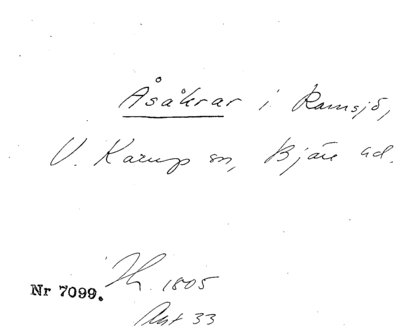 Åsåkrar i Ramsjö,
V. Karup sn, Bjäre hd.
Nr 7099. 1805
Akt 33